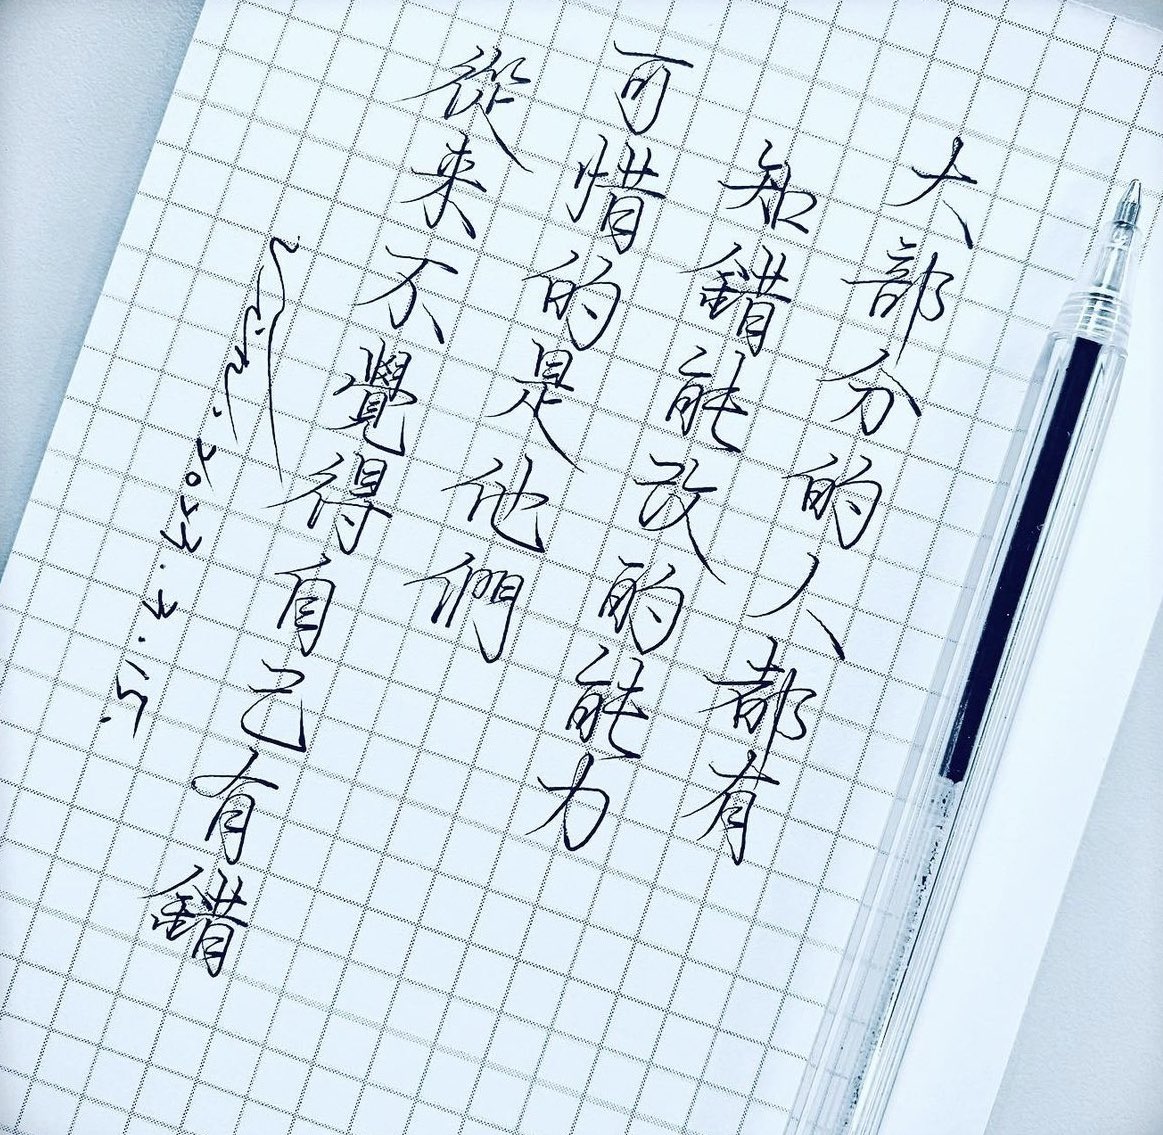 大部分的人都有
知錯能改的能力
可惜的是他們
從來不覺得自己有錯